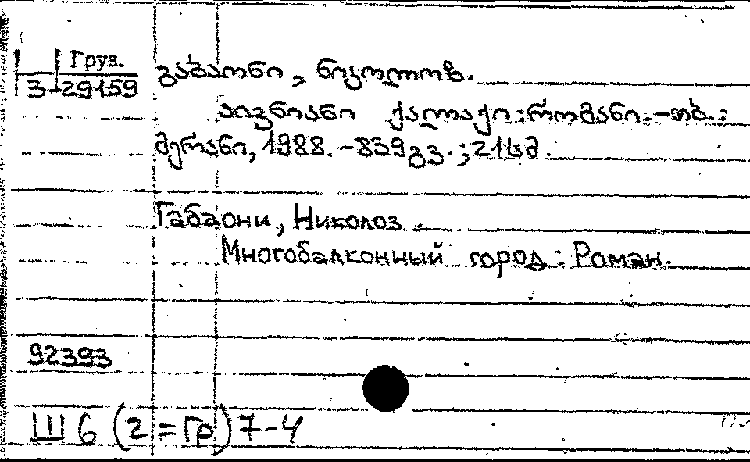 Груз.
3-29159
გაბაონი, ნიკოლოზ.
აივნიანი ქალაქი: რომანი. - თბ.:
მერანი, 1988. - 839 გვ.; 21 სმ.
Габаони, Николоз.
Многобалконный город: Роман.
92393
Ш 6 (2 = Гр) 7-4